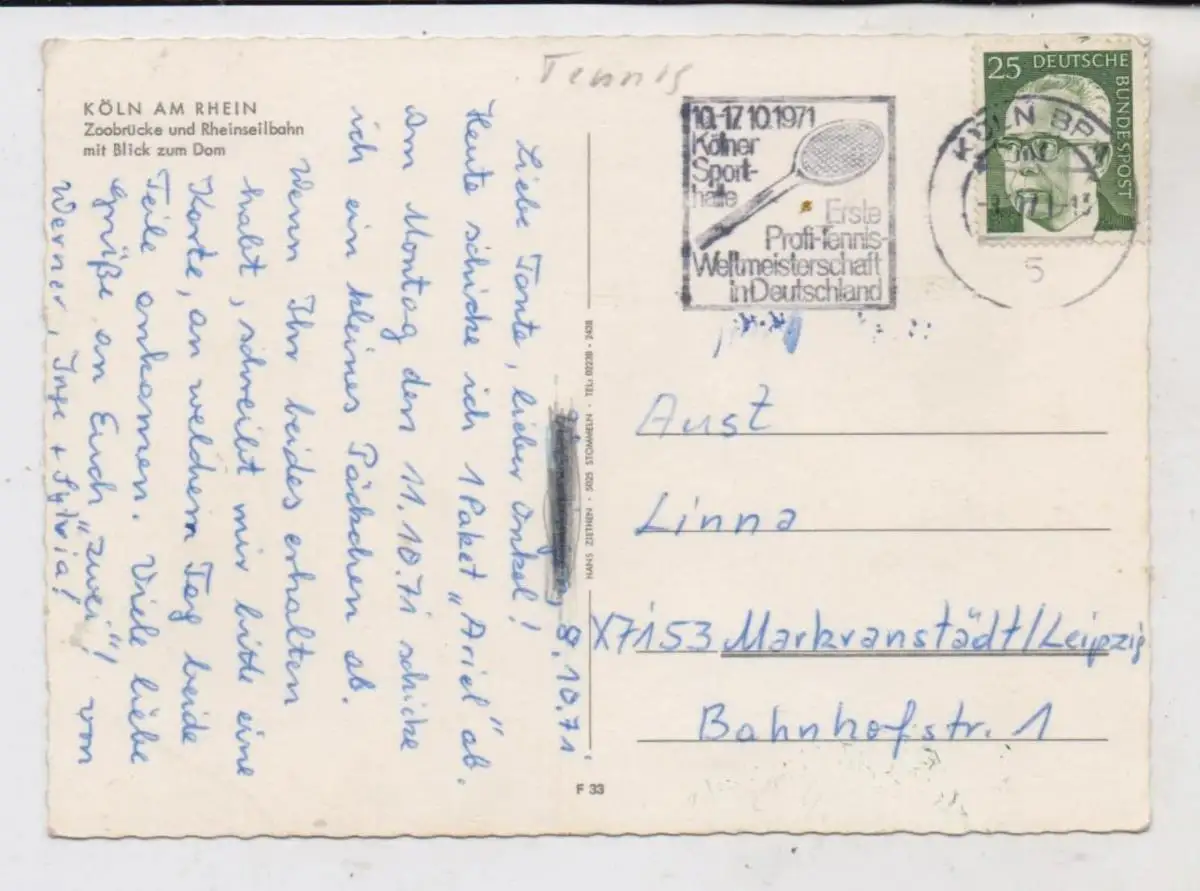 Tennis
KÖLN AM RHEIN
Zoobrücke und Rheinseilbahn
mit Blick zum Dom
8.10.71.
Liebe Tante, lieber Onkel!
Heute schicke ich 1 Paket „Ariel“ ab.
Am Montag den 11.10.71 schicke
ich ein kleines Päckchen ab.
Wenn Ihr beides erhalten
habt, schreibt mir bitte eine
Karte, an welchem Tag beide
Teile ankamen. Viele liebe
Grüße an Euch „zwei“! von
Werner, Inge + Sylvia!
HANS ZIETHEN - 5025 STOMMELN - TEL: 02238 - 2438
F 33
10.-17.10.1971
Kölner
Sport-
halle
Erste
Profi-Tennis-
Weltmeisterschaft
in Deutschland
KÖLN BPA
-13
5
25 DEUTSCHE
BUNDESPOST
Aust
Linna
X7153 Markranstädt/Leipzig
Bahnhofstr. 1